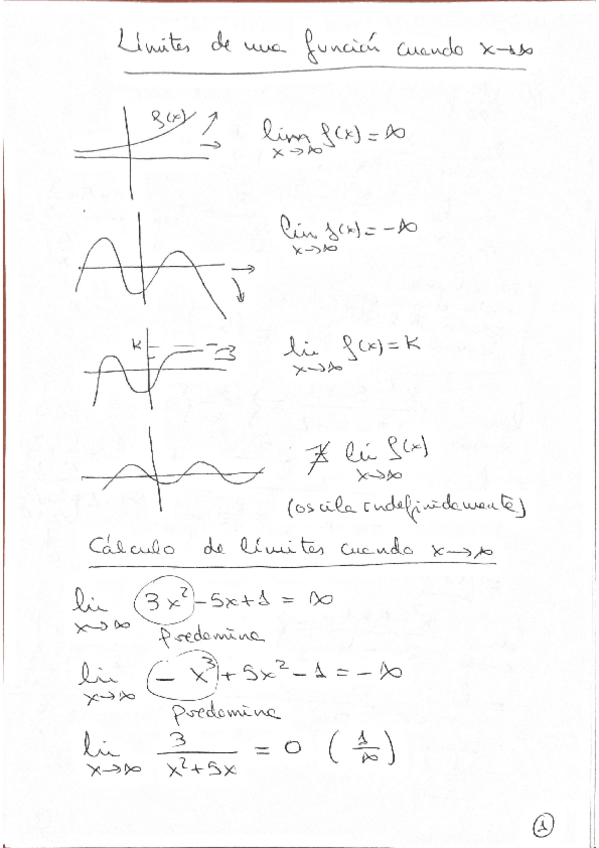 Límites de una función cuando x→∞
f(x)
lim f(x) = ∞
x→∞
lim f(x) = -∞
x→∞
K
lim f(x) = K
x→∞
∄ lim f(x)
x→∞
(oscila indefinidamente)
Cálculo de límites cuando x→∞
lim 3x²-5x+1 = ∞
x→∞
predomina
lim -x³+5x²-1 = -∞
x→∞
predomina
lim 3/(x²+5x) = 0 (1/∞)
x→∞
1